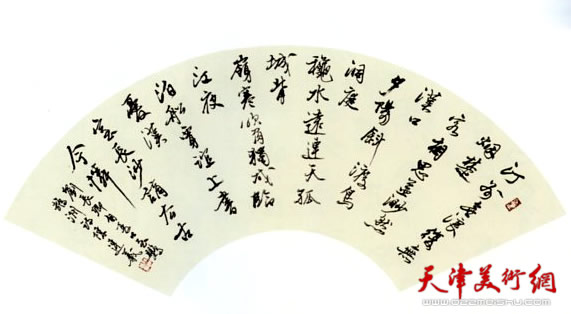 汀洲無浪復無
烟楚
客相思益渺然
漢口
夕陽斜渡鳥
洞庭
龝水遠連天孤
城背
嶺寒吹角獨戍臨
江夜
泊船賈誼上書
憂漢
室長沙謫去古
今憐
劉長卿
天津美術網